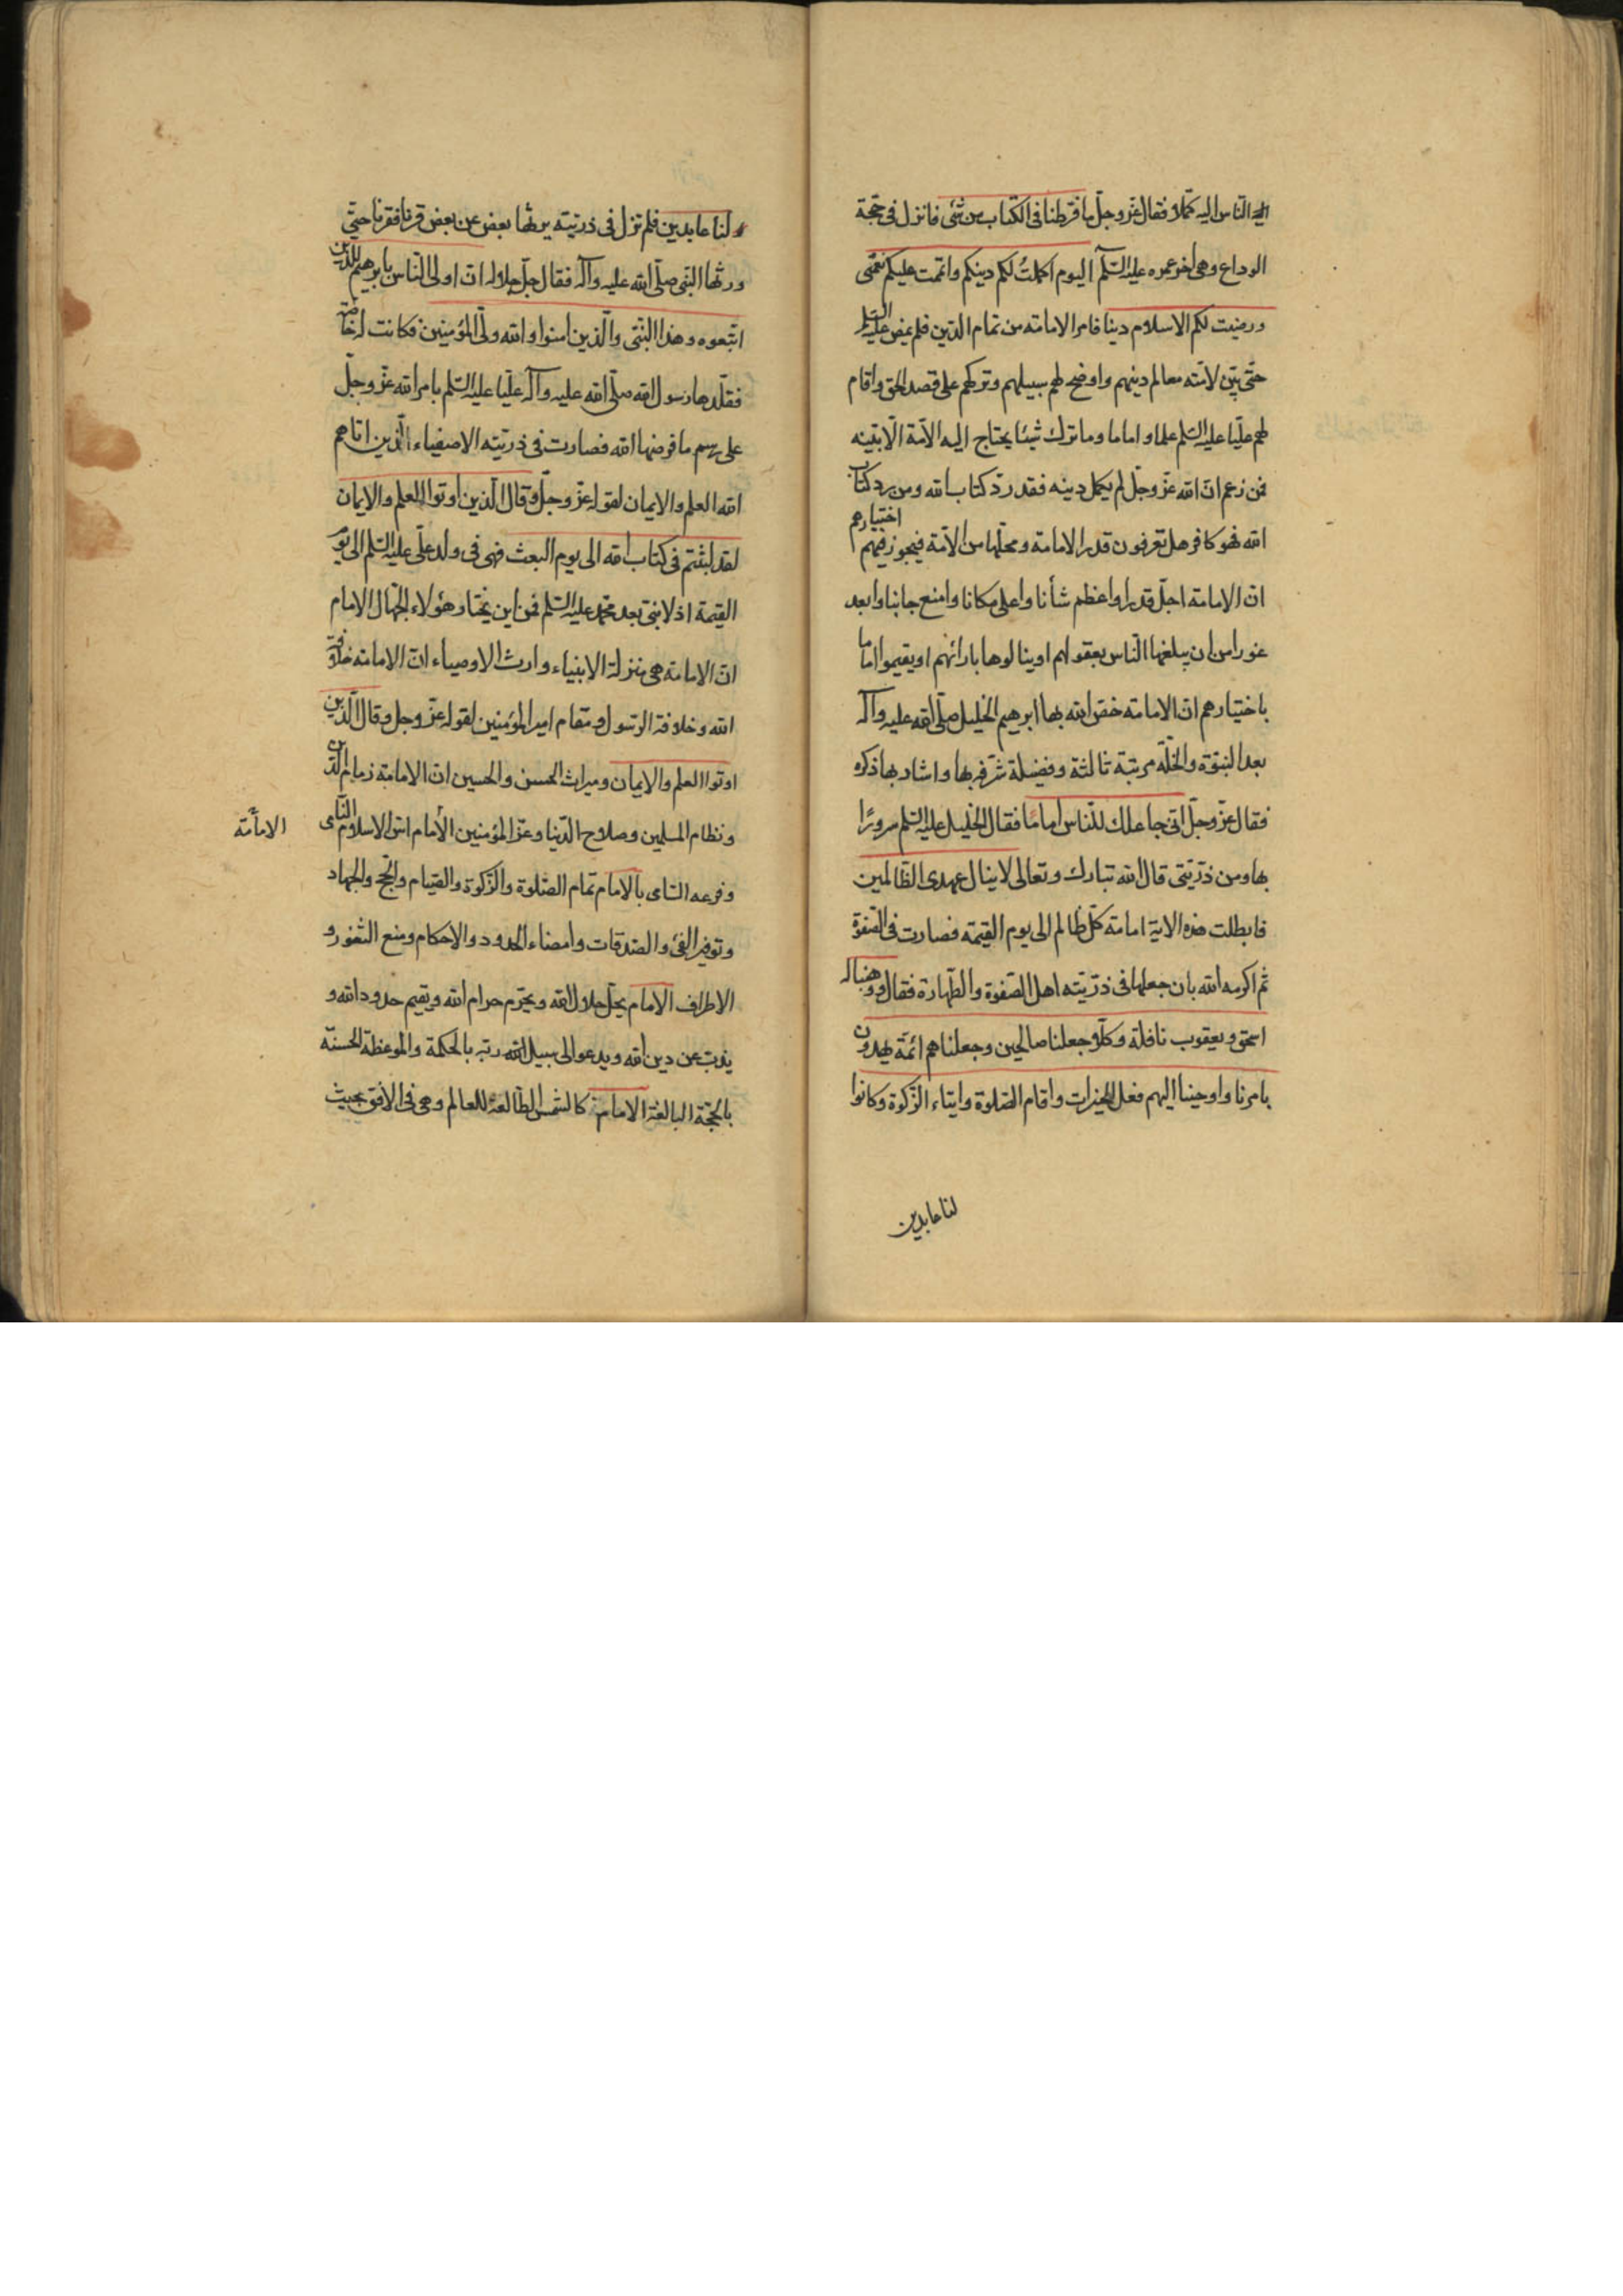 اليه الناس اليه كملا فقال عزّ وجلّ ما فرّطنا فى الكتاب من شئ فانزل فى حجة
الوداع وهى اخر عمره عليه السّلم اليوم اكملتُ لكم دينكم واتممت عليكم نعمتى
ورضيت لكم الاسلام دينا فامر الامامة من تمام الدّين فلم يمض عليه السّلم
حتّى بيّن لامّته معالم دينهم واوضح لهم سبيلهم وتركهم على قصد الحق واقام
لهم عليّا عليه السّلم علما و اماما وما ترك شيئا يحتاج اليه الامّة الّا بيّنه
فمن زعم انّ الله عزّ وجلّ لم يكمل دينه فقد ردّ كتاب الله ومن يرد كتاب
الله فهو كافر هل تعرفون قدر الامامة ومحلّها من الامّة فيجوز فيهم اختيارهم
انّ الامامة اجلّ قدرا واعظم شأنا واعلى مكانا وامنع جانبا وابعد
غورا من ان يبلغها النّاس بعقولهم او ينالوها بارائهم او يقيموا اماما
باختيارهم انّ الامامة خصّ الله بها ابرهيم الخليل صلّى الله عليه وآله
بعد النبوّة والخلّة مرتبة ثالثة وفضيلة شرّفه بها واشاد بها ذكره
فقال عزّ وجلّ انى جاعلك للنّاس اماما فقال الخليل عليه السّلم سرورًا
بها ومن ذرّيتى قال الله تبارك وتعالى لا ينال عهدى الظّالمين
فابطلت هذه الاية امامة كلّ ظالم الى يوم القيمة فصارت فى الصّفوة
ثم اكرمه الله بان جعلها فى ذرّيته اهل الصّفوة والطّهارة فقال ووهبنا له
اسحق ويعقوب نافلة وكلّا جعلنا صالحين وجعلناهم ائمّة يهدون
بامرنا واوحينا اليهم فعل الخيرات واقام الصّلوة وايتاء الزّكوة وكانوا
لنا عابدين
لنا عابدين فلم تزل فى ذريّته يرثها بعض عن بعض قرنا فقرنا حتّى
ورثها النّبى صلّى الله عليه وآله فقال جلّ جلاله انّ اولى النّاس بابرهيم للّذين
اتّبعوه وهذا النّبى والّذين امنوا والله ولىّ المؤمنين فكانت له خاصّة
فقلّدها رسول الله صلّى الله عليه وآله عليّا عليه السّلم بامر الله عزّ وجلّ
على رسم ما فرضها الله فصارت فى ذريّته الاصفياء الّذين اتاهم
الله العلم والايمان لقوله عزّ وجلّ وقال الّذين اوتوا العلم والايمان
لقد لبثتم فى كتاب الله الى يوم البعث فهى فى ولد علىّ عليه السّلم الى يوم
القيمة اذ لا نبىّ بعد محمّد عليه السّلم فمن اين يختار هؤلاء الجهّال الامام
انّ الامامة هى منزلة الانبياء وارث الاوصياء انّ الامامة خلافة
الله وخلافة الرّسول ومقام امير المؤمنين لقوله عزّ وجل وقال الّذين
اوتوا العلم والايمان وميراث الحسن والحسين انّ الامامة زمام الدّين
ونظام المسلمين وصلاح الدّنيا وعزّ المؤمنين الأمام اسّ الاسلام النّامى
الامامة
وفرعه السّامى بالامام تمام الصّلوة والزّكوة والصّيام والحجّ والجهاد
وتوفير الفئ والصّدقات وامضاء الحدود والاحكام ومنع الثغور و
الاطراف الامام يحلّ حلال الله ويحرّم حرام الله ويقيم حدود الله و
يذبّ عن دين الله ويدعو الى سبيل الله ربّه بالحكمة والموعظة الحسنة
بالحجّة البالغة الامام كالشّمس الطّالعة للعالم وهى فى الافق بحيث